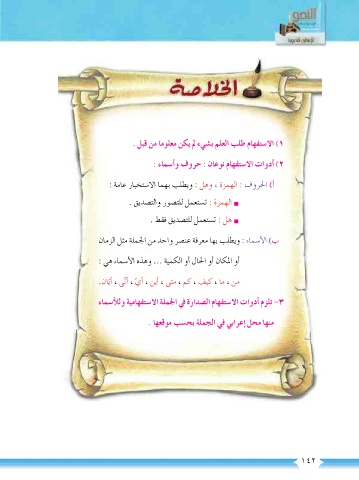 النمو
الخلاصة
١) الاستفهام طلب العلم بشيء لم يكن معلوما من قبل .
٢) أدوات الاستفهام نوعان : حروف وأسماء :
أ) الحروف : الهمزة ، وهل : ويطلب بهما الاستخبار عامة :
■ الهمزة : تستعمل للتصور والتصديق .
■ هل : تستعمل للتصديق فقط .
ب) الأسماء : ويطلب بها معرفة عنصر واحد من الجملة مثل الزمان
أو المكان أو الحال أو الكمية ... وهذه الأسماء هي :
من ، ما ، كيف ، كم ، متى ، أين ، أيّ ، أنّى ، أيّان.
٣- تلزم أدوات الاستفهام الصدارة في الجملة الاستفهامية وللأسماء
منها محل إعرابي في الجملة بحسب موقعها .
١٤٢